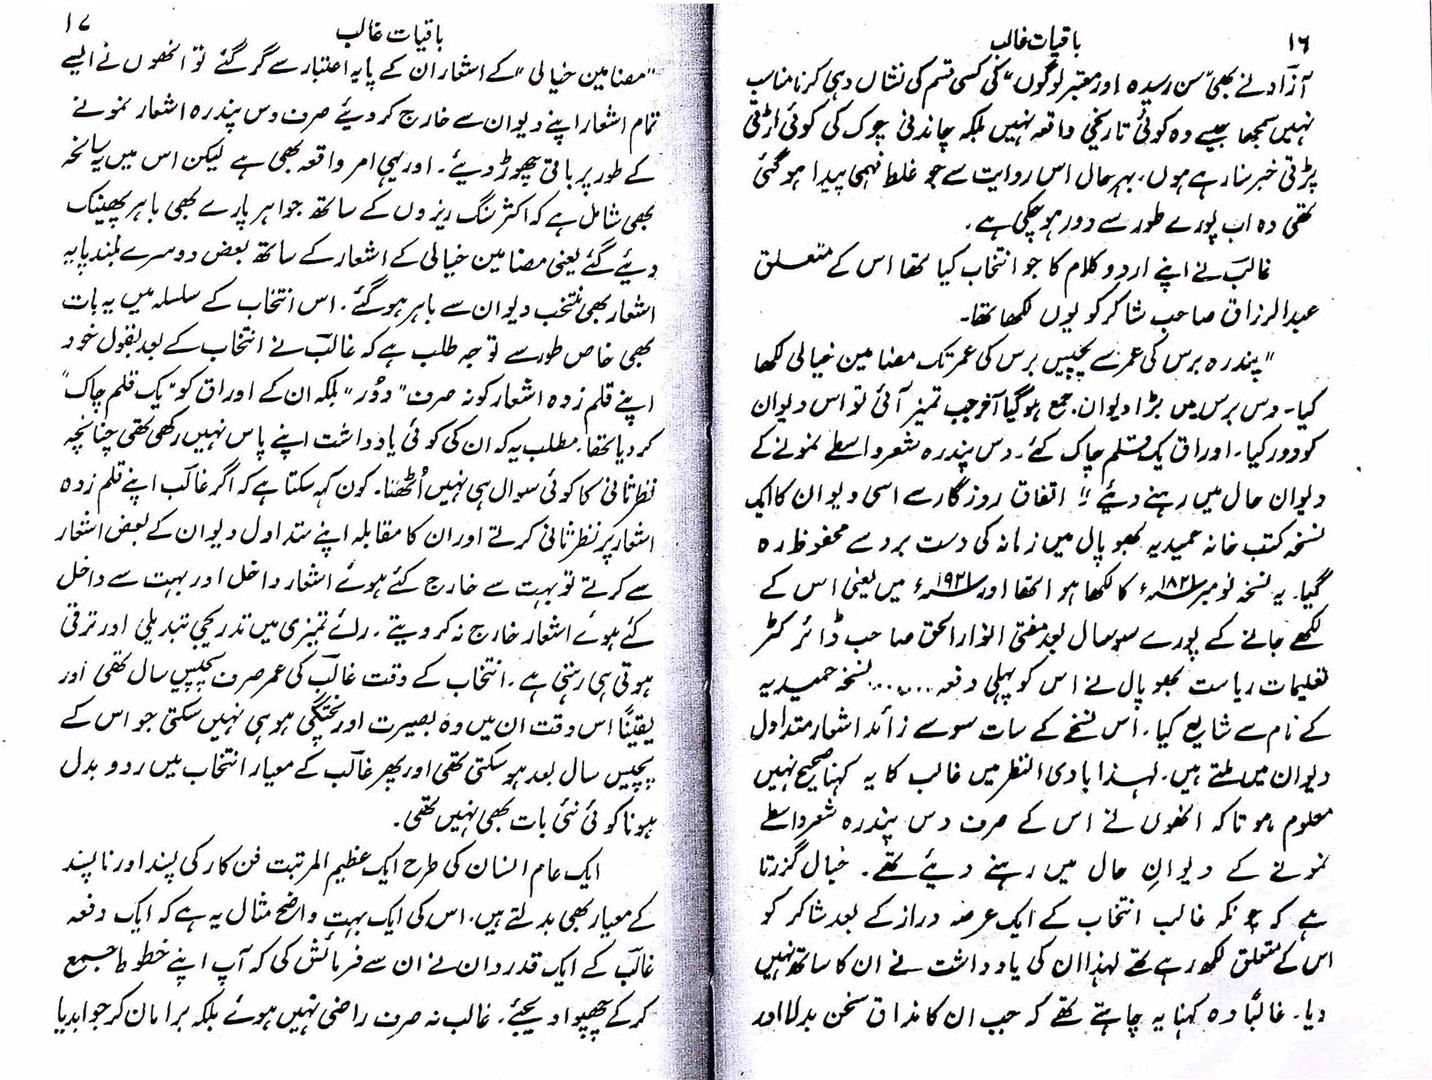 ۱۶
باقیات غالب
آزاد نے بھی "سن رسیدہ اور معتبر لوگوں" کی کسی قسم کی نشاں دہی کرنا مناسب
نہیں سمجھا جیسے وہ کوئی تاریخی واقعہ نہیں بلکہ چاندنی چوک کی کوئی اڑتی
پڑتی خبر سنا رہے ہوں، بہر حال اس روایت سے جو غلط فہمی پیدا ہو گئی
تھی وہ اب پورے طور سے دور ہو چکی ہے۔
غالبؔ نے اپنے اردو کلام کا جو انتخاب کیا تھا اس کے متعلق
عبدالرزاق صاحب شاکر کو یوں لکھا تھا۔
"پندرہ برس کی عمر سے پچیس برس کی عمر تک مضامین خیالی لکھا
کیا۔ دس برس میں بڑا دیوان جمع ہو گیا آخر جب تمیز آئی تو اس دیوان
کو دور کیا۔ اوراق یک قلم چاک کئے۔ دس پندرہ شعر واسطے نمونے کے
دیوان حال میں رہنے دیئے"۔ اتفاق روزگار سے اسی دیوان کا ایک
نسخہ کتب خانہ حمیدیہ بھوپال میں زمانہ کی دست برد سے محفوظ رہ
گیا۔ یہ نسخہ نومبر ۱۸۲۱ء کا لکھا ہوا تھا اور ۱۹۲۱ء میں یعنی اس کے
لکھے جانے کے پورے سو سال بعد مفتی انوار الحق صاحب ڈائرکٹر
تعلیمات ریاست بھوپال نے اس کو پہلی دفعہ ........ نسخہ حمیدیہ
کے نام سے شایع کیا۔ اس نسخے کے سات سو سے زائد اشعار متداول
دیوان میں ملتے ہیں۔ لہذا بادی النظر میں غالب کا یہ کہنا صحیح نہیں
معلوم ہوتا کہ انھوں نے اس کے صرف دس پندرہ شعر واسطے
نمونے کے دیوانِ حال میں رہنے دیئے تھے۔ خیال گزرتا
ہے کہ چونکہ غالب انتخاب کے ایک عرصہ دراز کے بعد شاکر کو
اس کے متعلق لکھ رہے تھے لہذا ان کی یادداشت نے ان کا ساتھ نہیں
دیا۔ غالباً وہ کہنا یہ چاہتے تھے کہ جب ان کا مذاق سخن بدلا اور
باقیات غالب
۱۷
"مضامین خیالی" کے اشعار ان کے پایہ اعتبار سے گر گئے تو انھوں نے ایسے
تمام اشعار اپنے دیوان سے خارج کر دیئے صرف دس پندرہ اشعار نمونے
کے طور پر باقی چھوڑ دیئے۔ اور یہی امر واقعہ بھی ہے لیکن اس میں یہ سانحہ
بھی شامل ہے کہ اکثر سنگ ریزوں کے ساتھ جواہر پارے بھی باہر پھینک
دیئے گئے یعنی مضامین خیالی کے اشعار کے ساتھ بعض دوسرے بلند پایہ
اشعار بھی منتخب دیوان سے باہر ہو گئے۔ اس انتخاب کے سلسلہ میں یہ بات
بھی خاص طور سے توجہ طلب ہے کہ غالبؔ نے انتخاب کے بعد بقول خود
اپنے قلم زدہ اشعار کو نہ صرف "دُور" بلکہ ان کے اوراق کو "یک قلم چاک"
کر دیا تھا۔ مطلب یہ کہ ان کی کوئی یادداشت اپنے پاس نہیں رکھی تھی چنانچہ
نظر ثانی کا کوئی سوال ہی نہیں اُٹھتا۔ کون کہہ سکتا ہے کہ اگر غالبؔ اپنے قلم زدہ
اشعار پر نظر ثانی کرتے اور ان کا مقابلہ اپنے متداول دیوان کے بعض اشعار
سے کرتے تو بہت سے خارج کئے ہوئے اشعار داخل اور بہت سے داخل
کئے ہوئے اشعار خارج نہ کر دیتے۔ رائے تمیزی میں تدریجی تبدیلی اور ترقی
ہوتی ہی رہتی ہے۔ انتخاب کے وقت غالبؔ کی عمر صرف پچیس سال تھی اور
یقیناً اس وقت ان میں وہ بصیرت اور پختگی ہو ہی نہیں سکتی جو اس کے
پچیس سال بعد ہو سکتی تھی اور پھر غالبؔ کے معیار انتخاب میں رد و بدل
ہونا کوئی نئی بات بھی نہیں تھی۔
ایک عام انسان کی طرح ایک عظیم المرتبت فن کار کی پسند اور ناپسند
کے معیار بھی بدلتے ہیں۔ اس کی ایک بہت واضح مثال یہ ہے کہ ایک دفعہ
غالبؔ کے ایک قدردان نے ان سے فرمائش کی کہ آپ اپنے خطوط جمع
کر کے چھپوا دیجئے۔ غالب نہ صرف راضی نہیں ہوئے بلکہ برا مان کر جواب دیا